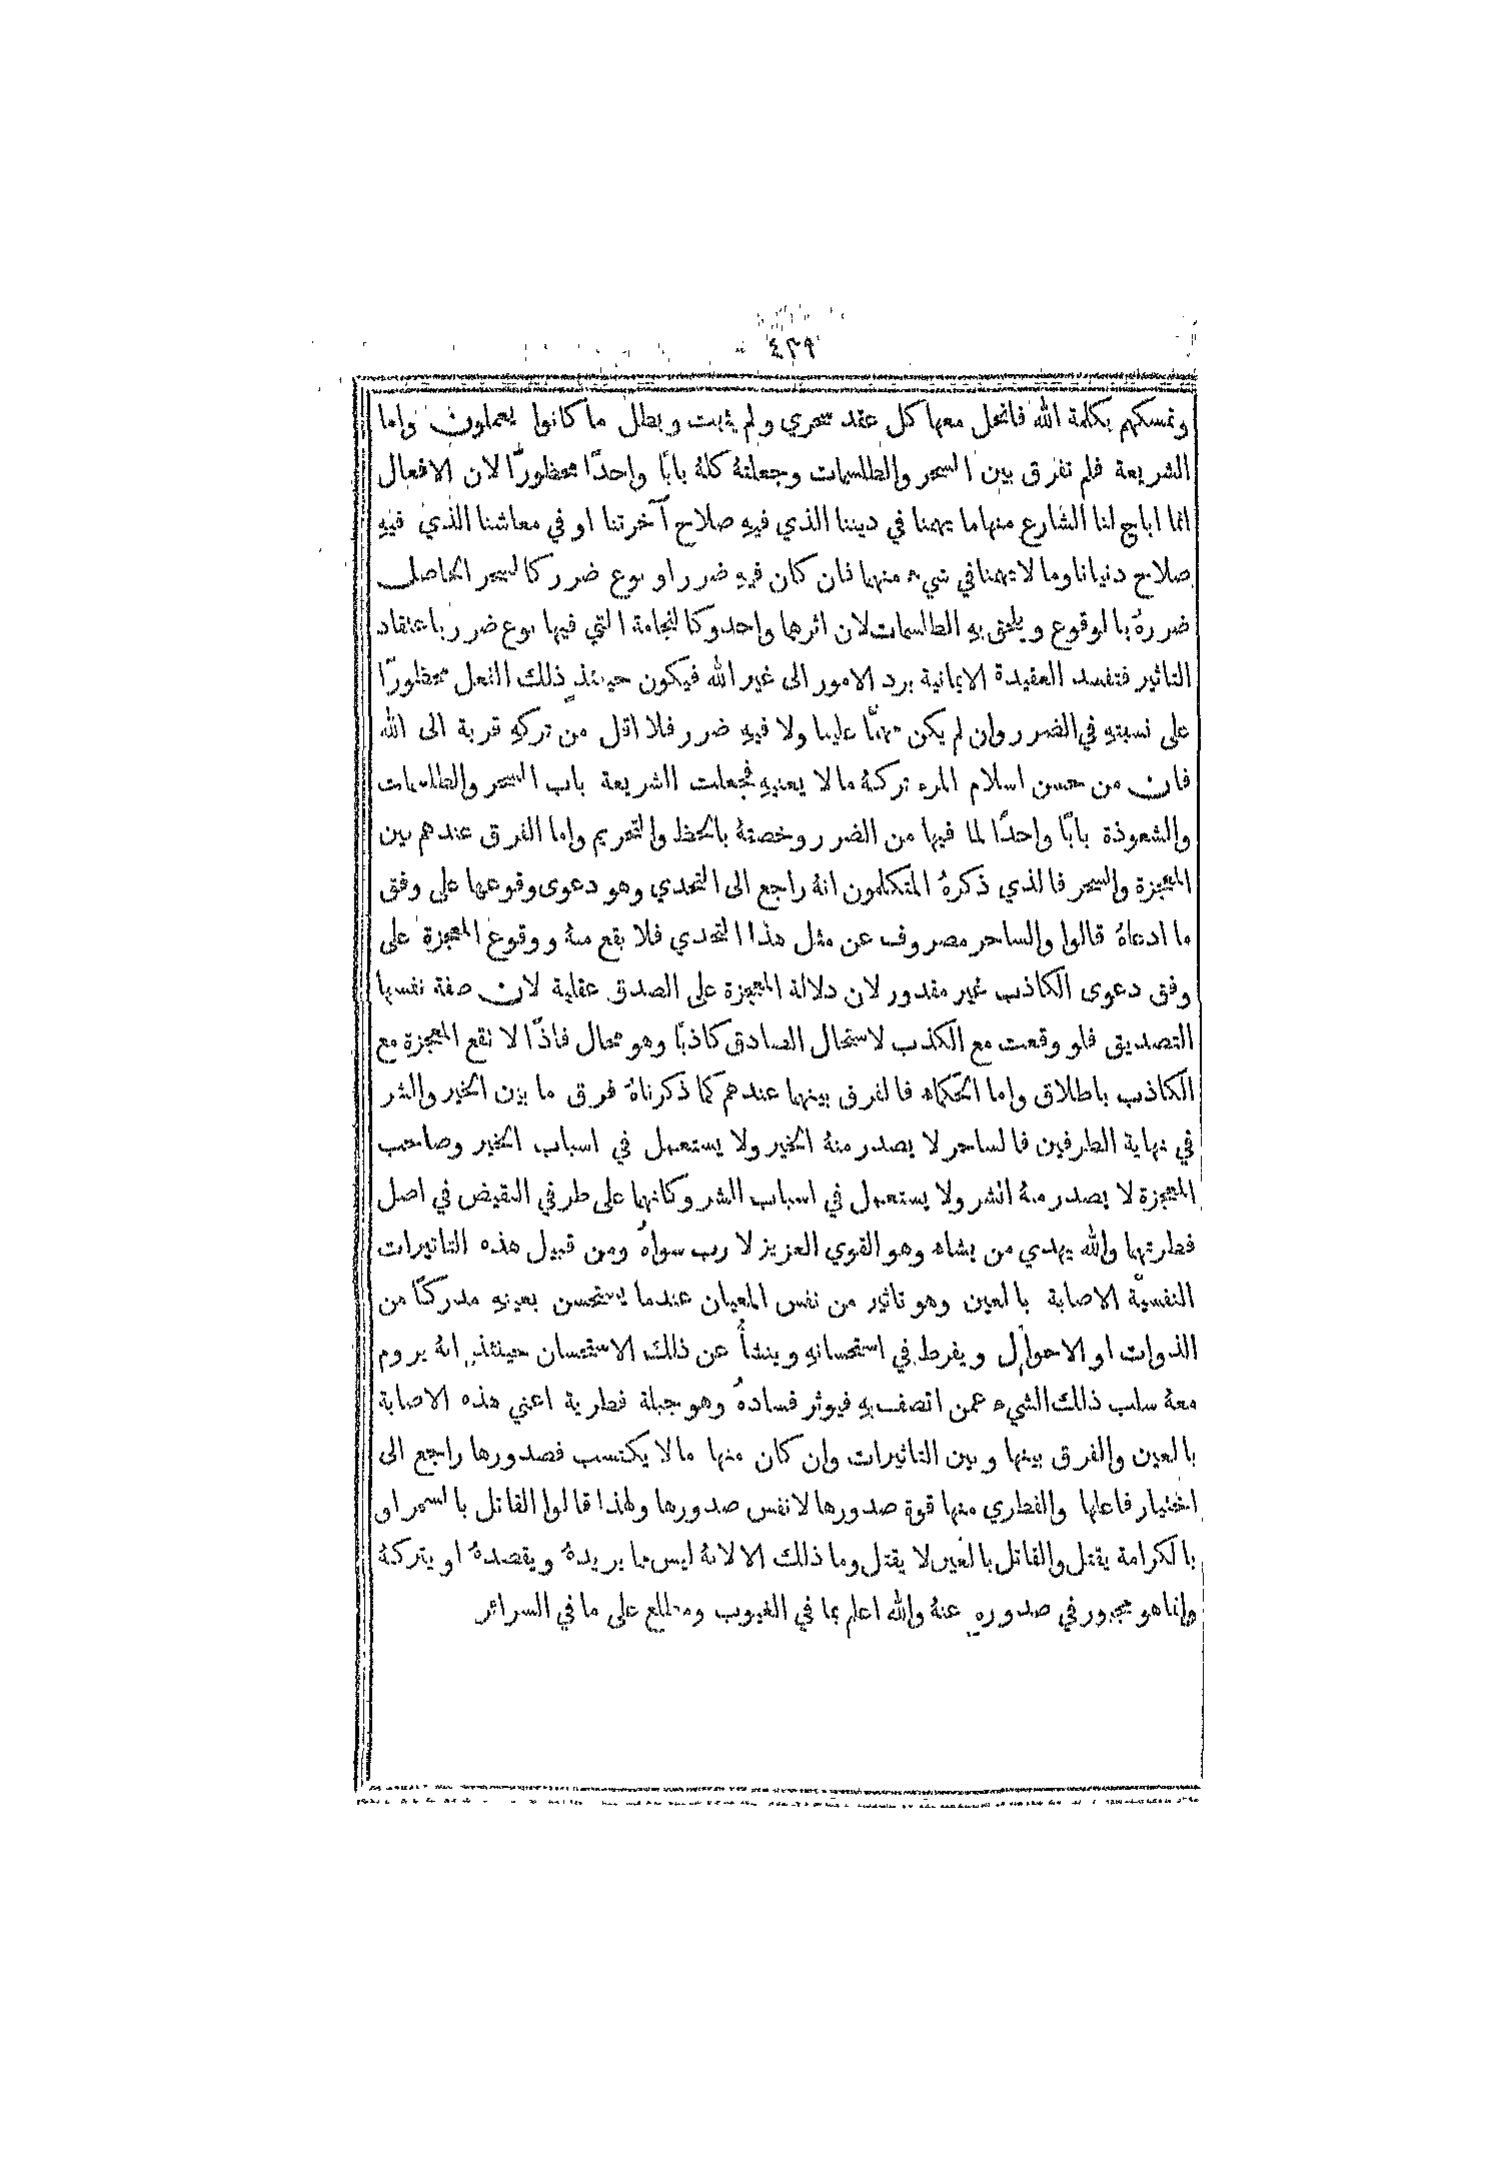 ٤٣٩
وتمسكهم بكلمة الله فانحل معها كل عقد سحري ولم يثبت وبطل ما كانوا يعملون واما
الشريعة فلم تفرق بين السحر والطلسمات وجعلتهُ كلهُ بابًا واحدًا محظورًا لان الافعال
انما اباح لنا الشارع منها ما يهمنا في ديننا الذي فيهِ صلاح آخرتنا او في معاشنا الذي فيهِ
صلاح دنيانا وما لا يهمنا في شيء منهما فان كان فيهِ ضرر او نوع ضرر كالسحر الحاصل
ضررهُ بالوقوع ويلحق بهِ الطلسمات لان اثرهما واحد وكالنجامة التي فيها نوع ضرر باعتقاد
التاثير فتفسد العقيدة الايمانية برد الامور الى غير الله فيكون حينئذٍ ذلك الفعل محظورًا
على نسبتهِ في الضرر وان لم يكن مهمًّا علينا ولا فيهِ ضرر فلا اقل من تركهِ قربة الى الله
فان من حسن اسلام المرء تركهُ ما لا يعنيهِ فجعلت الشريعة باب السحر والطلسمات
والشعوذة بابًا واحدًا لما فيها من الضرر وخصتهُ بالحظر والتحريم واما الفرق عندهم بين
المعجزة والسحر فالذي ذكرهُ المتكلمون انهُ راجع الى التحدي وهو دعوى وقوعها على وفق
ما ادعاهُ قالوا والساحر مصروف عن مثل هذا التحدي فلا يقع منهُ ووقوع المعجزة على
وفق دعوى الكاذب غير مقدور لان دلالة المعجزة على الصدق عقلية لان صفة نفسها
التصديق فلو وقعت مع الكذب لاستحال الصادق كاذبًا وهو محال فاذًا لا تقع المعجزة مع
الكاذب باطلاق واما الحكماء فالفرق بينهما عندهم كما ذكرناهُ فرق ما بين الخير والشر
في نهاية الطرفين فالساحر لا يصدر منهُ الخير ولا يستعمل في اسباب الخير وصاحب
المعجزة لا يصدر منهُ الشر ولا يستعمل في اسباب الشر وكانهما على طرفي النقيض في اصل
فطرتهما والله يهدي من يشاء وهو القوي العزيز لا رب سواهُ ومن قبيل هذه التاثيرات
النفسيّة الاصابة بالعين وهو تاثير من نفس المعيان عندما يستحسن بعينهِ مدركًا من
الذوات او الاحوال ويفرط في استحسانهِ وينشأُ عن ذلك الاستحسان حينئذٍ انهُ يروم
معهُ سلب ذلك الشيء عمن اتصف بهِ فيوثر فسادهُ وهو جبلة فطرية اعني هذه الاصابة
بالعين والفرق بينها وبين التاثيرات وان كان منها ما لا يكتسب فصدورها راجع الى
اختيار فاعلها والفطري منها قوة صدورها لا نفس صدورها ولهذا قالوا القاتل بالسحر او
بالكرامة يقتل والقاتل بالعين لا يقتل وما ذلك الا لانهُ ليس مما يريدهُ ويقصدهُ او يتركهُ
وانما هو مجبور في صدورهِ عنهُ والله اعلم بما في الغيوب ومطلع على ما في السرائر